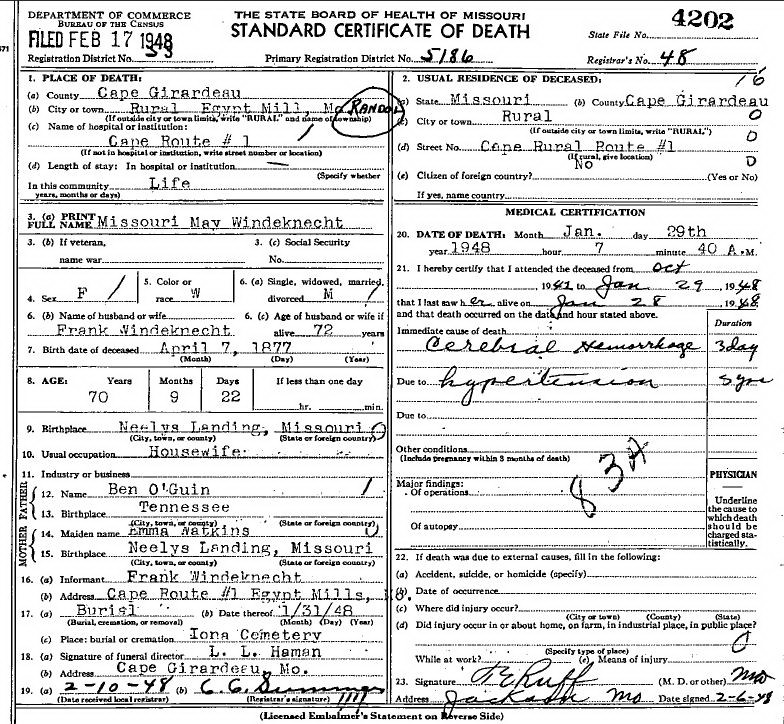 671
DEPARTMENT OF COMMERCE
BUREAU OF THE CENSUS
THE STATE BOARD OF HEALTH OF MISSOURI
STANDARD CERTIFICATE OF DEATH
4202
State File No.
FILED FEB 17 1948
Registration District No. 53
Primary Registration District No. 5186
Registrar's No. 48
1. PLACE OF DEATH:
(a) County Cape Girardeau
(b) City or town Rural Egypt Mill, Mo RANDOL
(If outside city or town limits, write "RURAL" and name of township)
(c) Name of hospital or institution:
Cape Route # 1
(If not in hospital or institution, write street number or location)
(d) Length of stay: In hospital or institution
(Specify whether
In this community Life
years, months or days)
2. USUAL RESIDENCE OF DECEASED:
16
(a) State Missouri (b) County Cape Girardeau
(c) City or town Rural 0
(If outside city or town limits, write "RURAL") 0
(d) Street No. Cape Rural Route #1
(If rural, give location) 0
No
(e) Citizen of foreign country? (Yes or No)
If yes, name country
3. (a) PRINT FULL NAME Missouri May Windeknecht
3. (b) If veteran, name war
3. (c) Social Security No.
4. Sex F /
5. Color or race W
6. (a) Single, widowed, married, divorced M /
6. (b) Name of husband or wife
Frank Windeknecht
6. (c) Age of husband or wife if alive 72 years
7. Birth date of deceased April 7, 1877
(Month) (Day) (Year)
8. AGE: Years Months Days If less than one day
70 9 22 hr. min.
9. Birthplace Neelys Landing, Missouri 0
(City, town, or county) (State or foreign country)
10. Usual occupation Housewife
11. Industry or business
FATHER
12. Name Ben O'Guin /
13. Birthplace Tennessee
(City, town, or county) (State or foreign country)
MOTHER
14. Maiden name Emma Watkins 0
15. Birthplace Neelys Landing, Missouri
(City, town, or county) (State or foreign country)
16. (a) Informant Frank Windeknecht
(b) Address Cape Route #1 Egypt Mills,
17. (a) Burial (b) Date thereof 1/31/48
(Burial, cremation, or removal) (Month) (Day) (Year)
(c) Place: burial or cremation Iona Cemetery
18. (a) Signature of funeral director L. L. Haman
(b) Address Cape Girardeau, Mo.
19. (a) 2-10-48 (b) C. C.
(Date received local registrar) (Registrar's signature)
MEDICAL CERTIFICATION
20. DATE OF DEATH: Month Jan. day 29th
year 1948 hour 7 minute 40 A.M.
21. I hereby certify that I attended the deceased from Oct
, 1942 to Jan 29, 1948
that I last saw her alive on Jan 28, 1948
and that death occurred on the date and hour stated above.
Duration
Immediate cause of death
Cerebral Hemorrhage 3 day
Due to hypertension 5 yrs
Due to
Other conditions
(Include pregnancy within 3 months of death)
83A
Major findings:
Of operations
Of autopsy
PHYSICIAN
Underline the cause to which death should be charged statistically.
22. If death was due to external causes, fill in the following:
(a) Accident, suicide, or homicide (specify)
(b) Date of occurrence
(c) Where did injury occur?
(City or town) (County) (State)
(d) Did injury occur in or about home, on farm, in industrial place, in public place?
0
(Specify type of place)
While at work? (e) Means of injury
23. Signature Ruff (M. D. or other) MD
Address Jackson Mo Date signed 2-6-48
(Licensed Embalmer's Statement on Reverse Side)